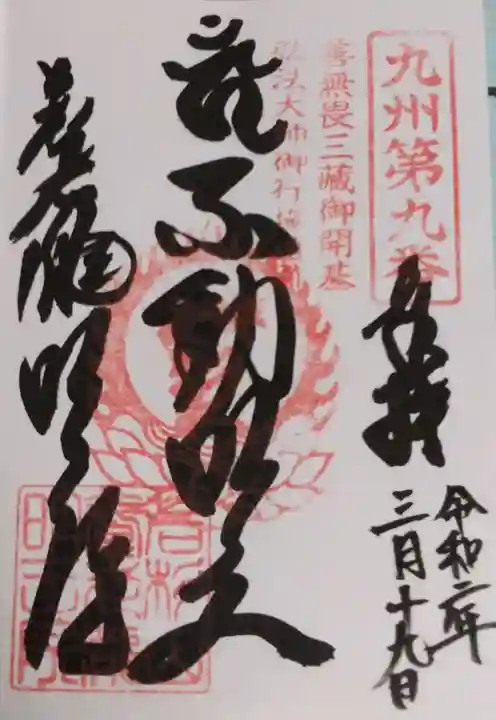 九州第九番
奉拝
令和二年
三月十九日
善無畏三蔵御開基
弘法大師御行
不動明王
明王院